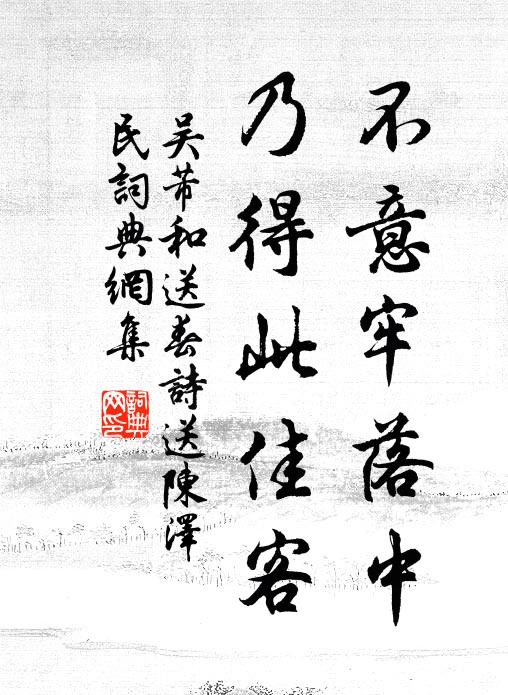 不意牢落中
乃得此佳客
吴芾和送春詩送陳澤
民詞典網集
詞典網印